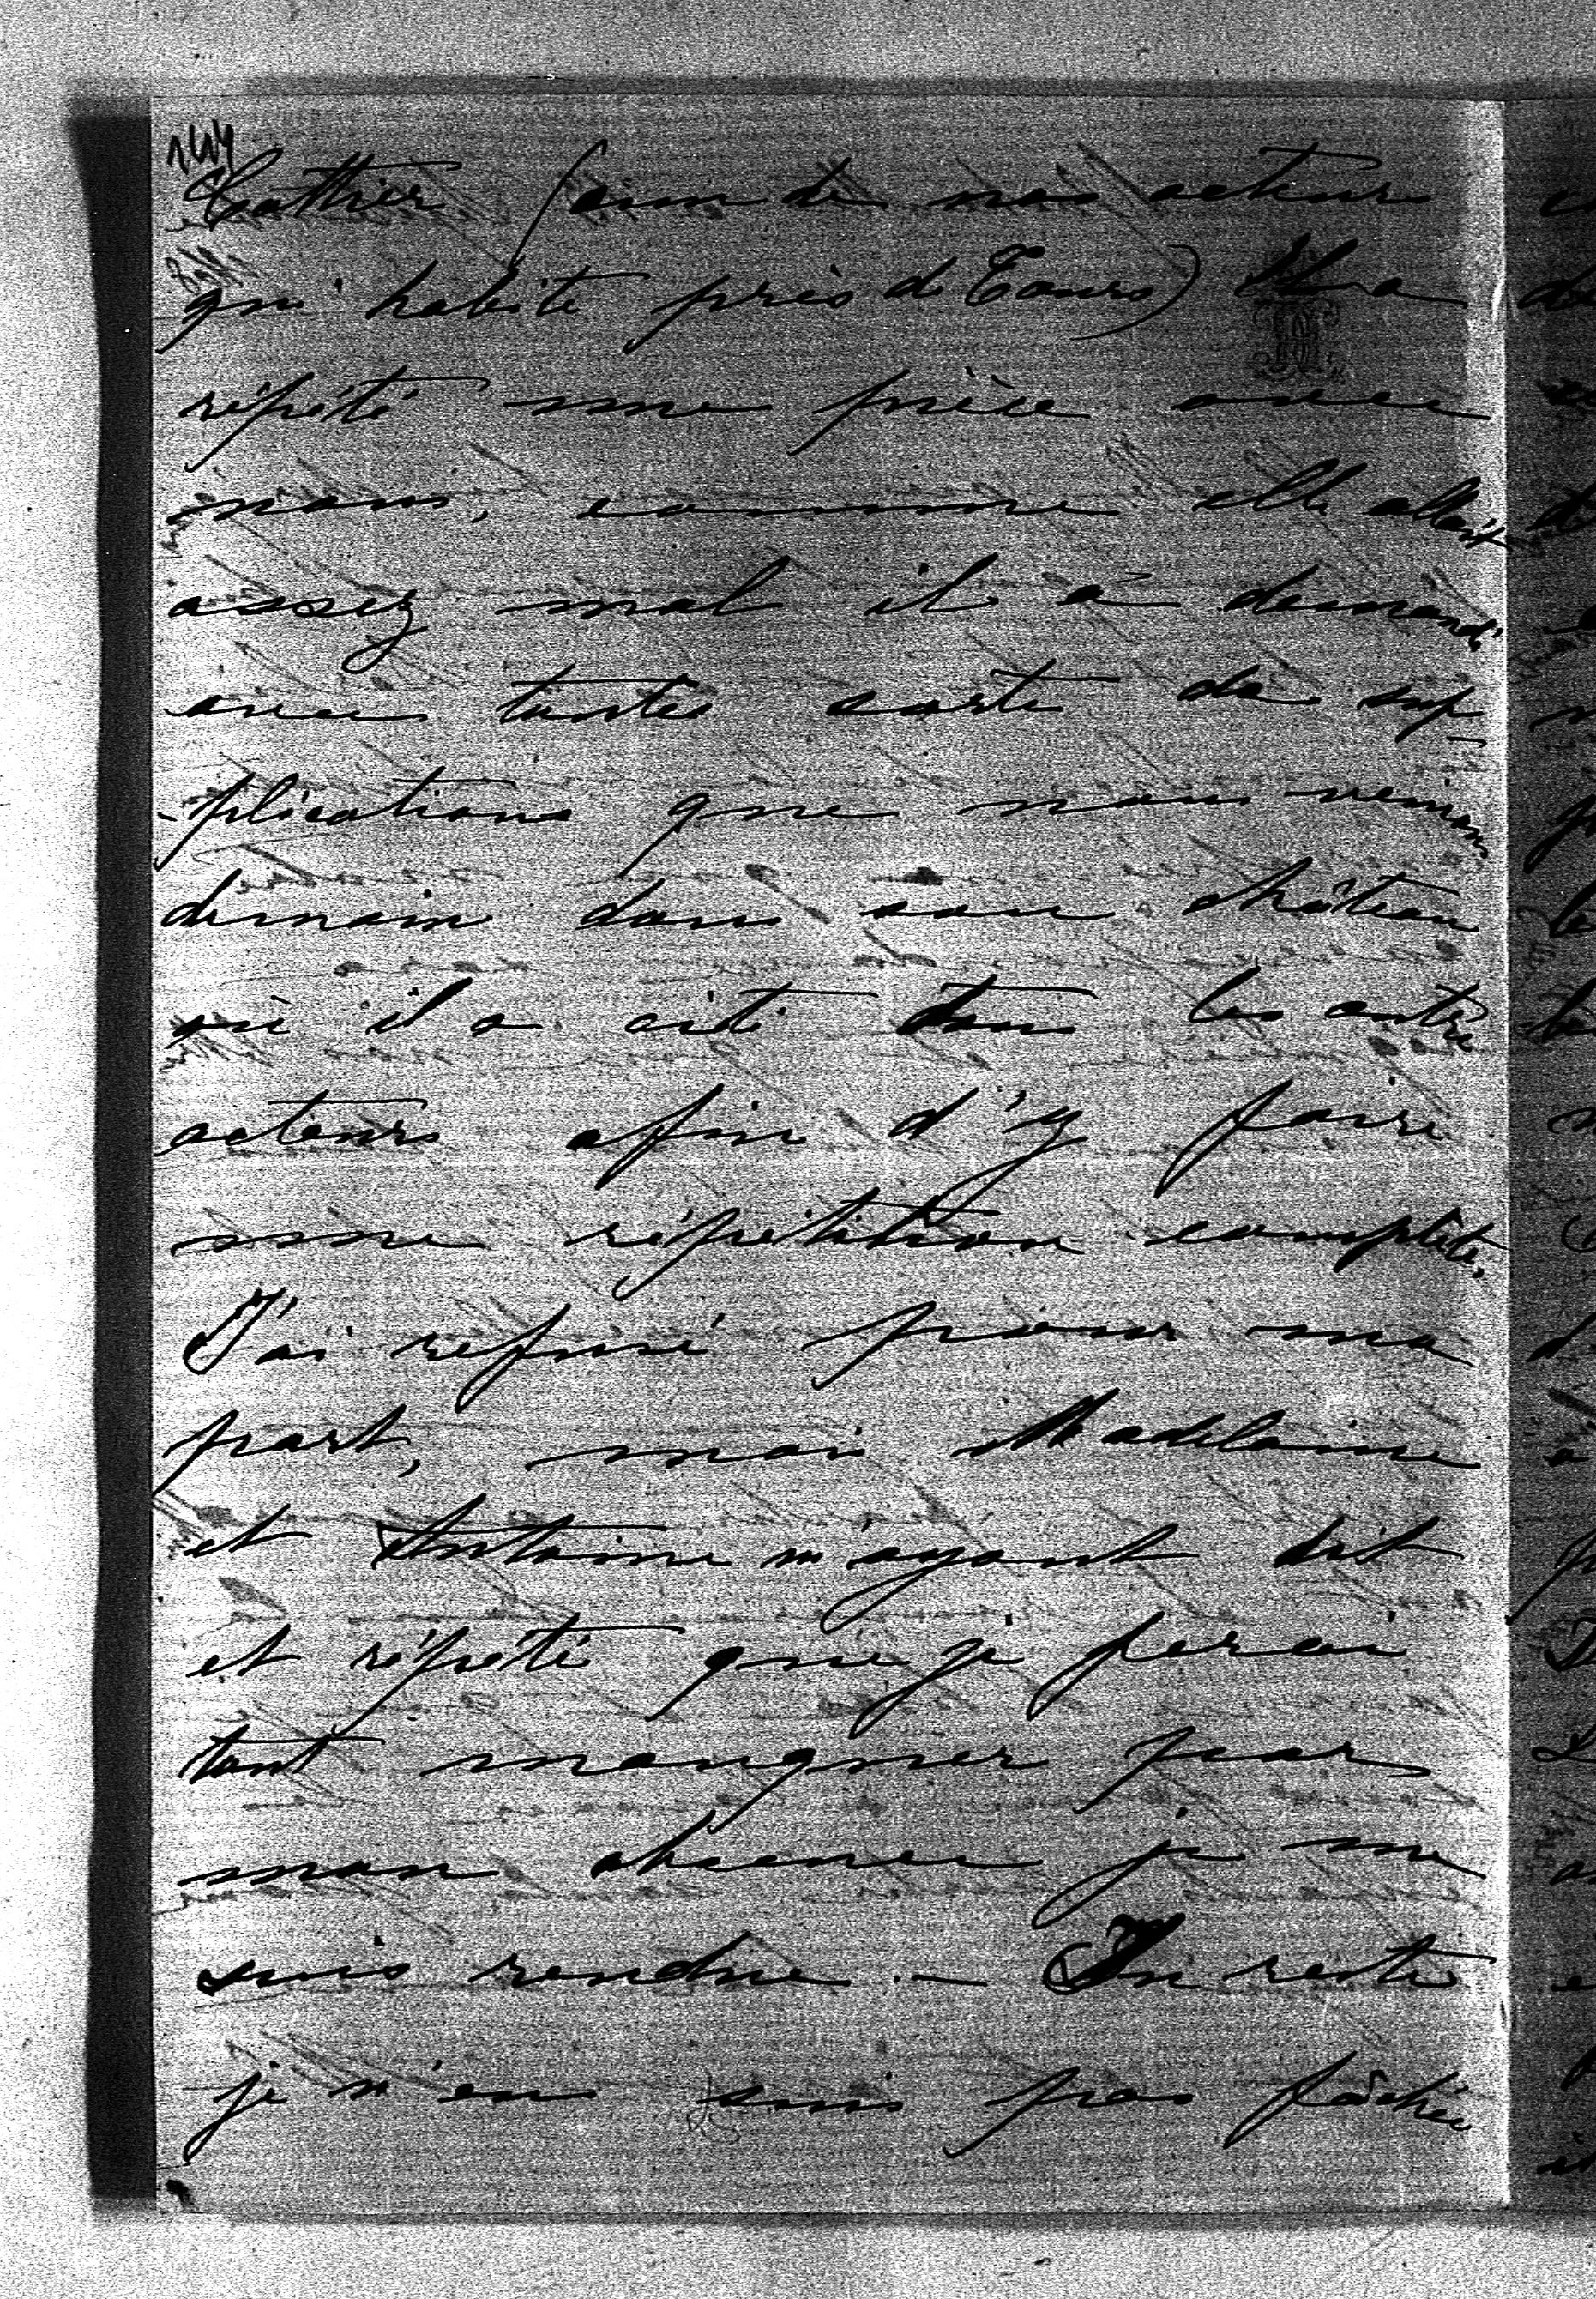 144
Cottier (un de nos acteurs
qui habite près de Tours) Il a
répété une pièce avec
nous, comme elle allait
assez mal il a demandé
avec toutes sorte de sup
-plications que nous venions
demain dans son château
où il a cité tous les autre
acteurs afin d'y faire
une répétition complète.
J'ai refusé pour ma
part, mais Madelaine
et Antoine m'ayant dit
et répété que je ferai
tout manquer par
mon absence je me
suis rendue. — Du reste
je n'en suis pas fâchée